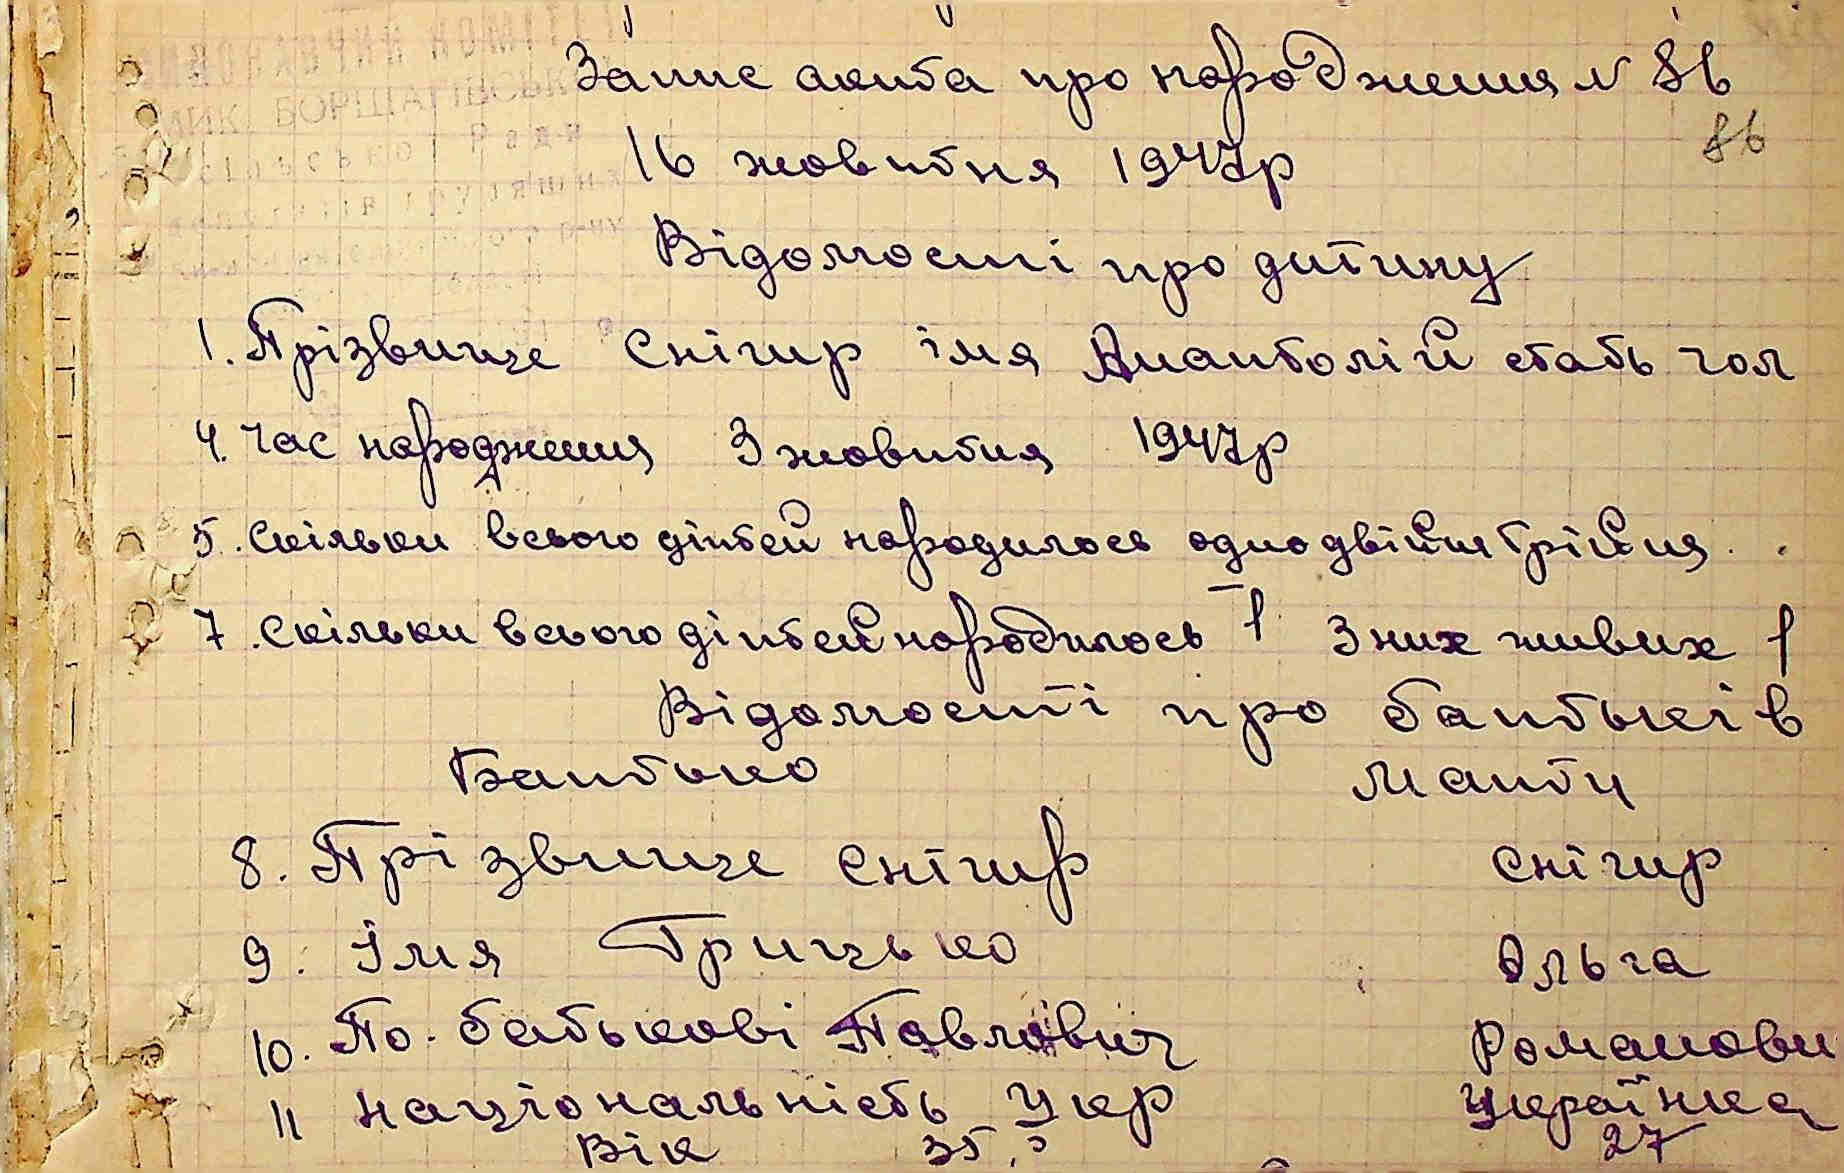 Запис акта про народження N 86
86
16 жовтня 1947р
МИК. БОРЩАГІВСЬК
Відомості про дитину
1. Прізвище Снігир імя Анатолій стать чол
4. Час народження 3 жовтня 1947р
5. Скільки всього дітей народилось одно двійня трійня.
7. Скільки всього дітей народилось 1 З них живих 1
Відомості про батьків
Батько Мати
8. Прізвище Снігир Снігир
9. Імя Грицько Ольга
10. По. батькові Павлович Романови
11 Національність Укр Українка
Вік 35 27